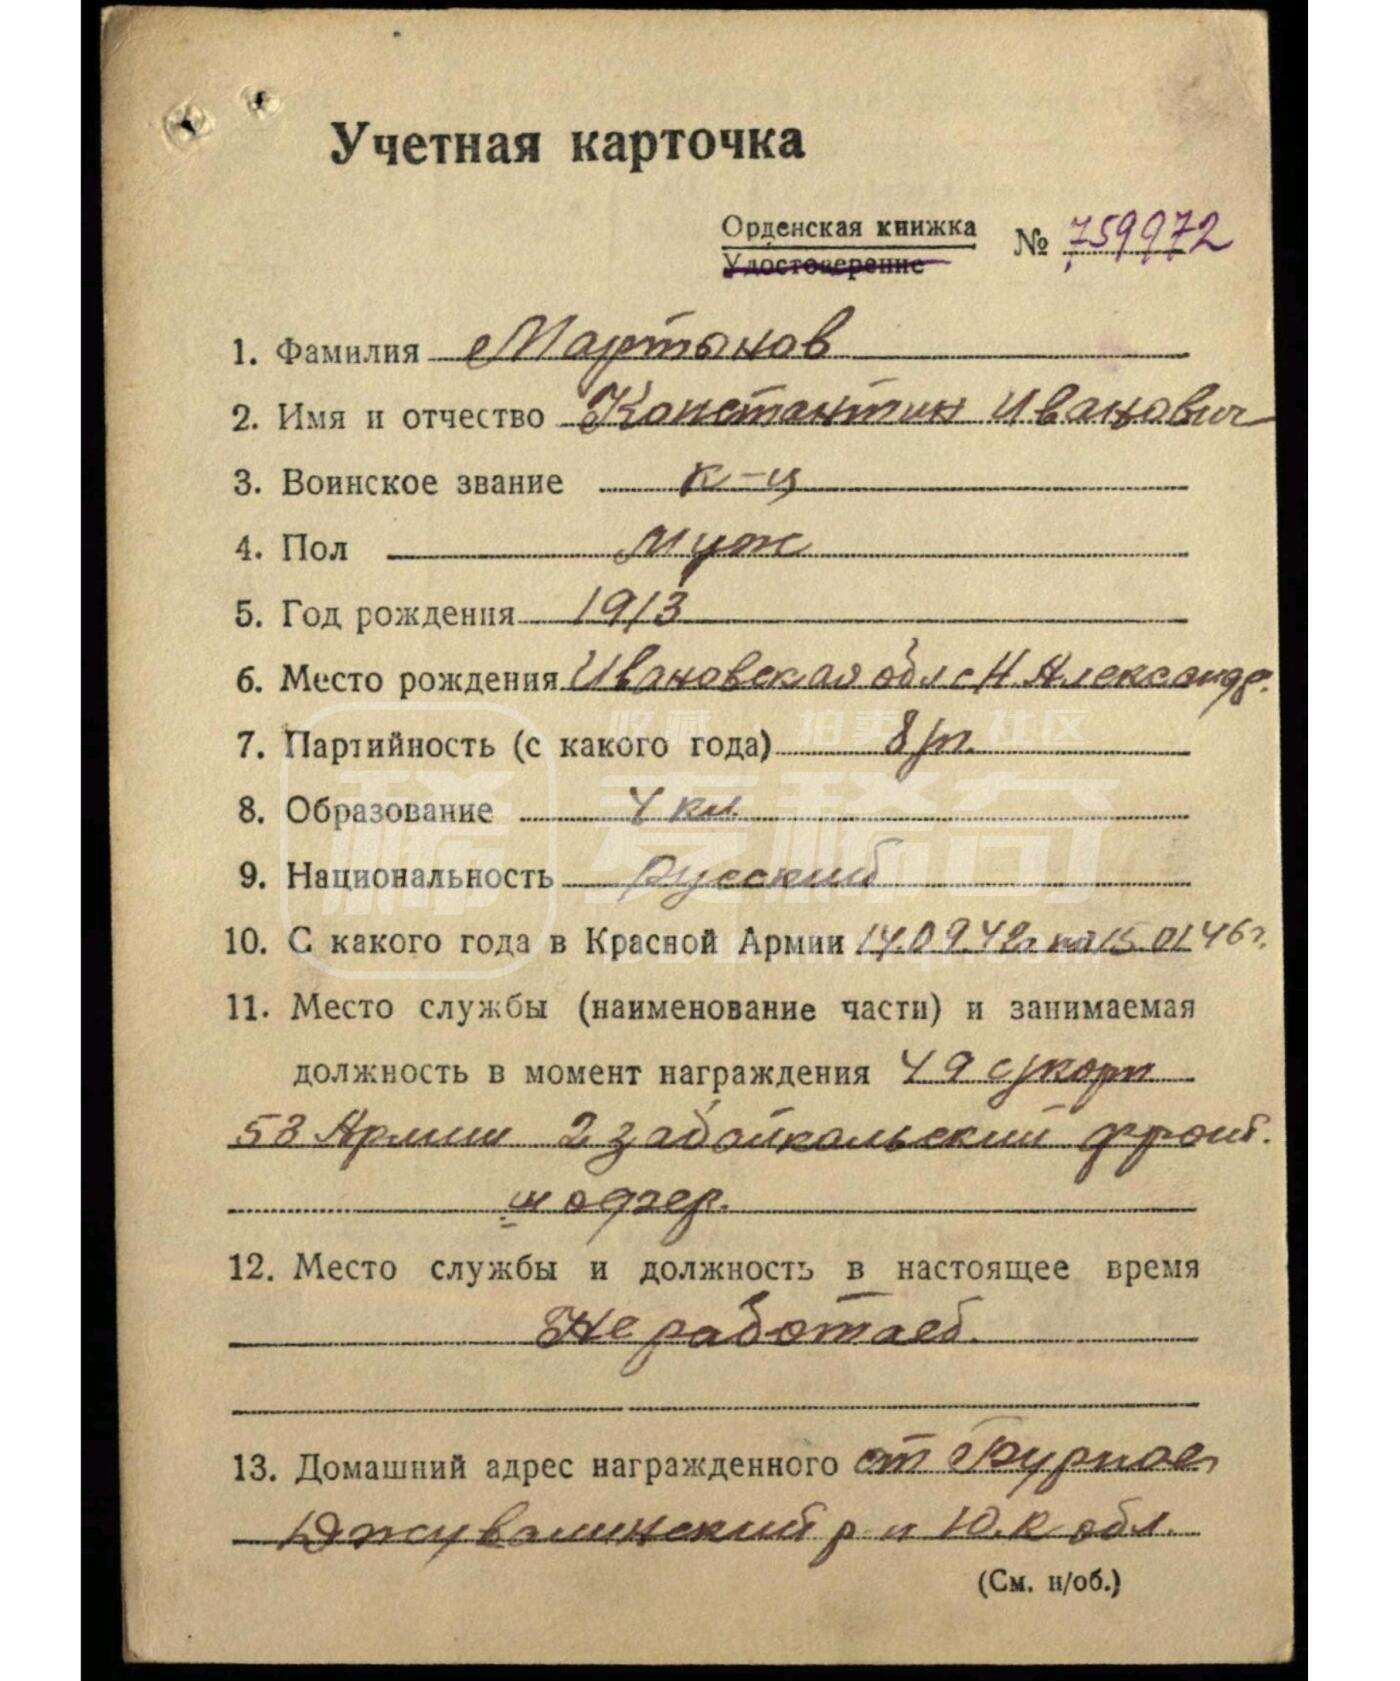 Учетная карточка
Орденская книжка
Удостоверение
№ 759972
1. Фамилия Мартынов
2. Имя и отчество Константин Иванович
3. Воинское звание к-ц
4. Пол муж
5. Год рождения 1913
6. Место рождения Ивановская обл с Н Александр.
收藏 拍卖 社区
7. Партийность (с какого года) б/п.
稀 麦稀奇
8. Образование 4 кл.
9. Национальность русский
10. С какого года в Красной Армии 14.09.42г по 15 01 46г.
11. Место службы (наименование части) и занимаемая
должность в момент награждения 49 с/корп
53 Армии 2 забайкальский фронт.
12. Место службы и должность в настоящее время
Не работает.
13. Домашний адрес награжденного ст Бурное,
Джувалинский р н Ю.К обл.
(См. н/об.)